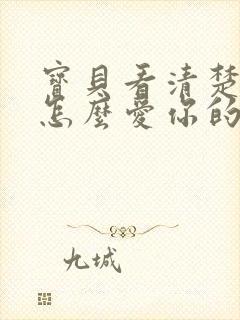 寶貝看清楚
怎麼愛你的
九城